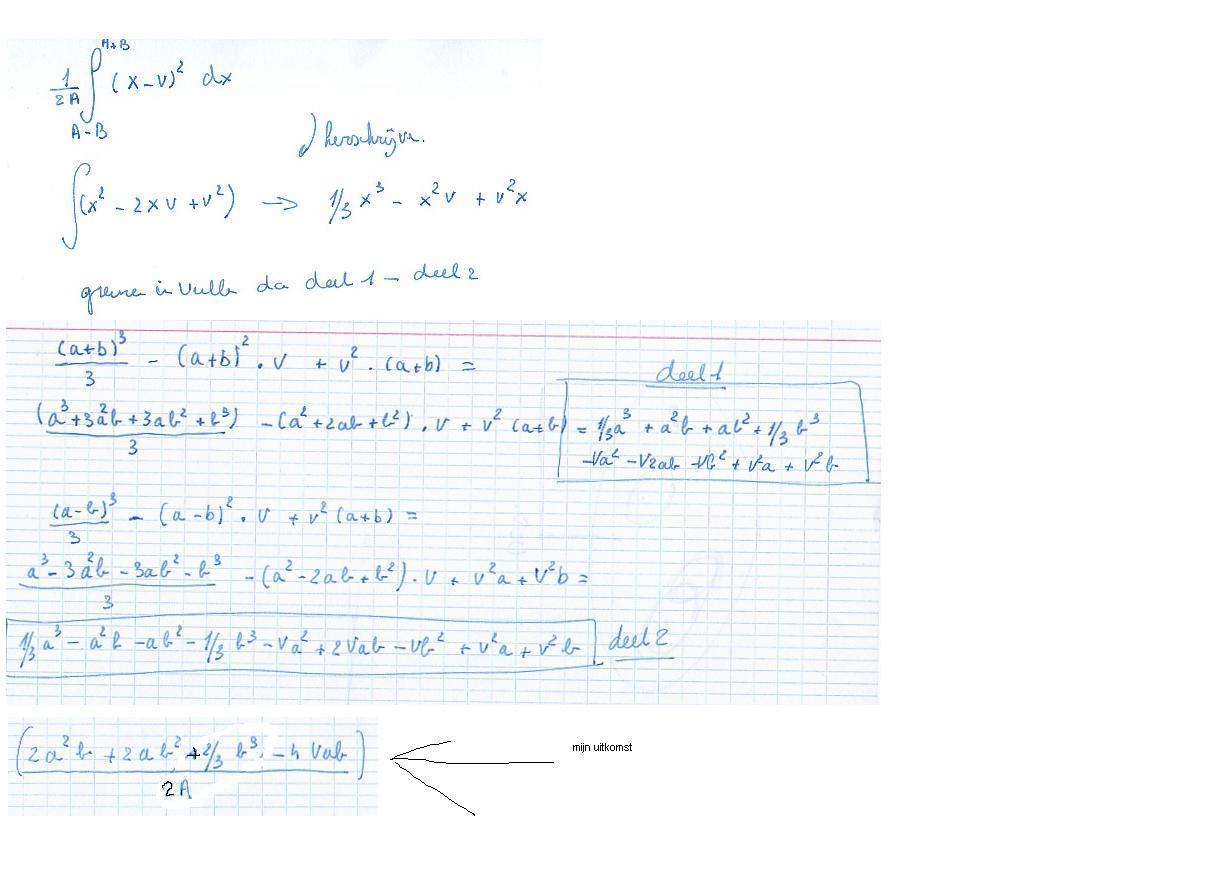 A+B
1/2A ∫ (x-v)² dx
A-B
) herschrijven.
∫(x² - 2xv + v²) → 1/3 x³ - x²v + v²x
in deel 1 - deel 2
(a+b)³/3 - (a+b)² . v + v² . (a+b) =
deel 1
(a³ + 3a²b + 3ab² + b³)/3 - (a² + 2ab + b²) . v + v² (a+b) = 1/3 a³ + a²b + ab² + 1/3 b³
-va² - v2ab - vb² + v²a + v²b
(a-b)³/3 - (a-b)² . v + v² (a+b) =
a³ - 3a²b - 3ab² - b³/3 - (a² - 2ab + b²) . v + v²a + v²b =
1/3 a³ - a²b - ab² - 1/3 b³ - va² + 2vab - vb² + v²a + v²b deel 2
(2a²b + 2ab² + 2/3 b³ - 4 vab)/2A
mijn uitkomst